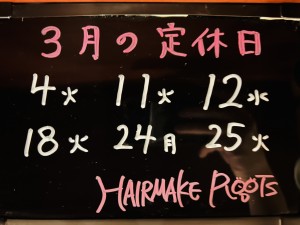 3月の定休日
4火 11火 12水
18火 24月 25火
HAIRMAKE ROOTS